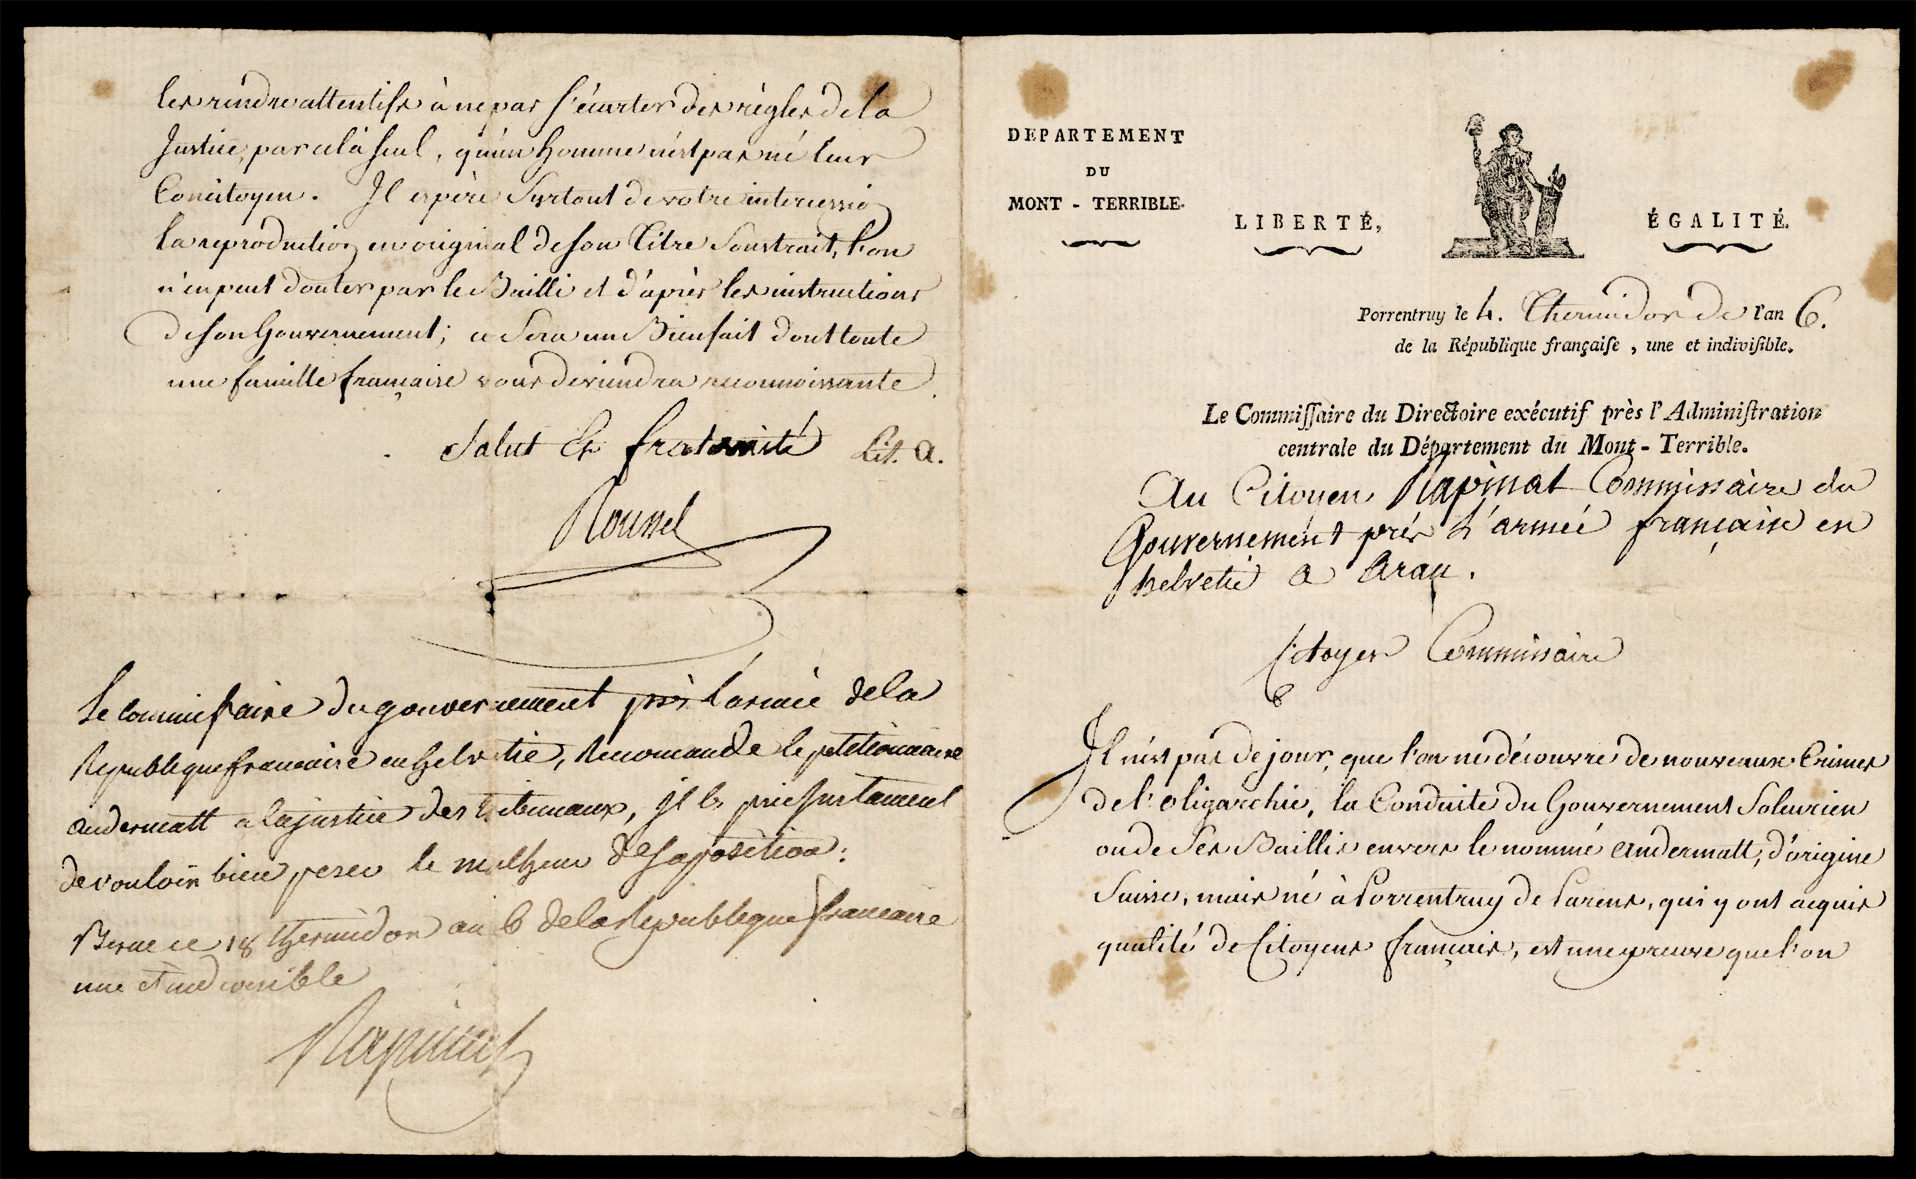 DEPARTEMENT
DU
MONT - TERRIBLE.
LIBERTÉ,
ÉGALITÉ.
Porrentruy le 4. Thermidor de l'an 6.
de la République françaiſe , une et indiviſible.
Le Commiſſaire du Directoire exécutif près l'Adminiſtration
centrale du Département du Mont - Terrible.
Au Citoyen Rapinat Commissaire du
Gouvernement près L'armée française en
helvetie a Arau.
Citoyen Commissaire
Il n'est pas de jour, que l'on ne découvre de nouveaux Crimes
de l'oligarchie, la Conduite du Gouvernement Soleurien
ou de Ses Baillis envers le nommé Andermatt, d'origine
Suisse, mais né à Porrentruy de Parens, qui y ont acquis
qualité de Citoyens français, est une preuve que l'on
les rendre attentifs à ne pas s'écarter des règles de la
Justice, par cela seul, qu'un homme n'est pas né leur
Concitoyen. Il espère Surtout de votre intercession
la reproduction en original de son Titre Soustrait, l'on
n'en peut douter par le Bailli et d'après les instructions
de son Gouvernement; ce Sera un Bienfait dont toute
une famille française vous deviendra reconnoissante
Salut Et fraternité Lit. a.
Roussel
Le commissaire du gouvernement près l'armée de la
Republique francaise en helvetie, Recomande le petitionnaire
andermatt a la justice des tribunaux, il les prie justament
de vouloir bien peser le malheur de sa position:
Berne ce 18 thermidor an 6 de la Republique francaise
une et indivisible
Rapinat